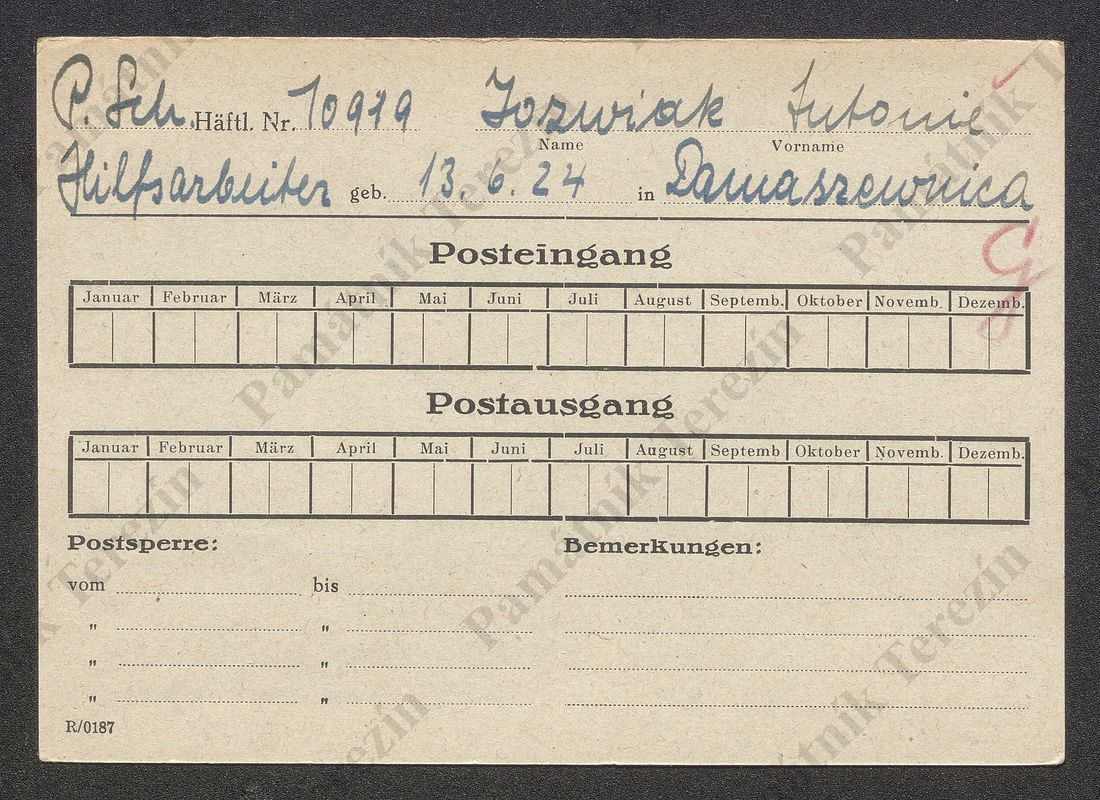 P. Sch. Häftl. Nr. 10979 Jozwiak Antonie
Name Vorname
Hilfsarbeiter geb. 13. 6. 24 in Damaszewnica
Posteingang
Januar Februar März April Mai Juni Juli August Septemb. Oktober Novemb. Dezemb.
Postausgang
Januar Februar März April Mai Juni Juli August Septemb Oktober Novemb. Dezemb.
Postsperre: Bemerkungen:
vom bis
" "
" "
" "
R/0187
Památník Terezín